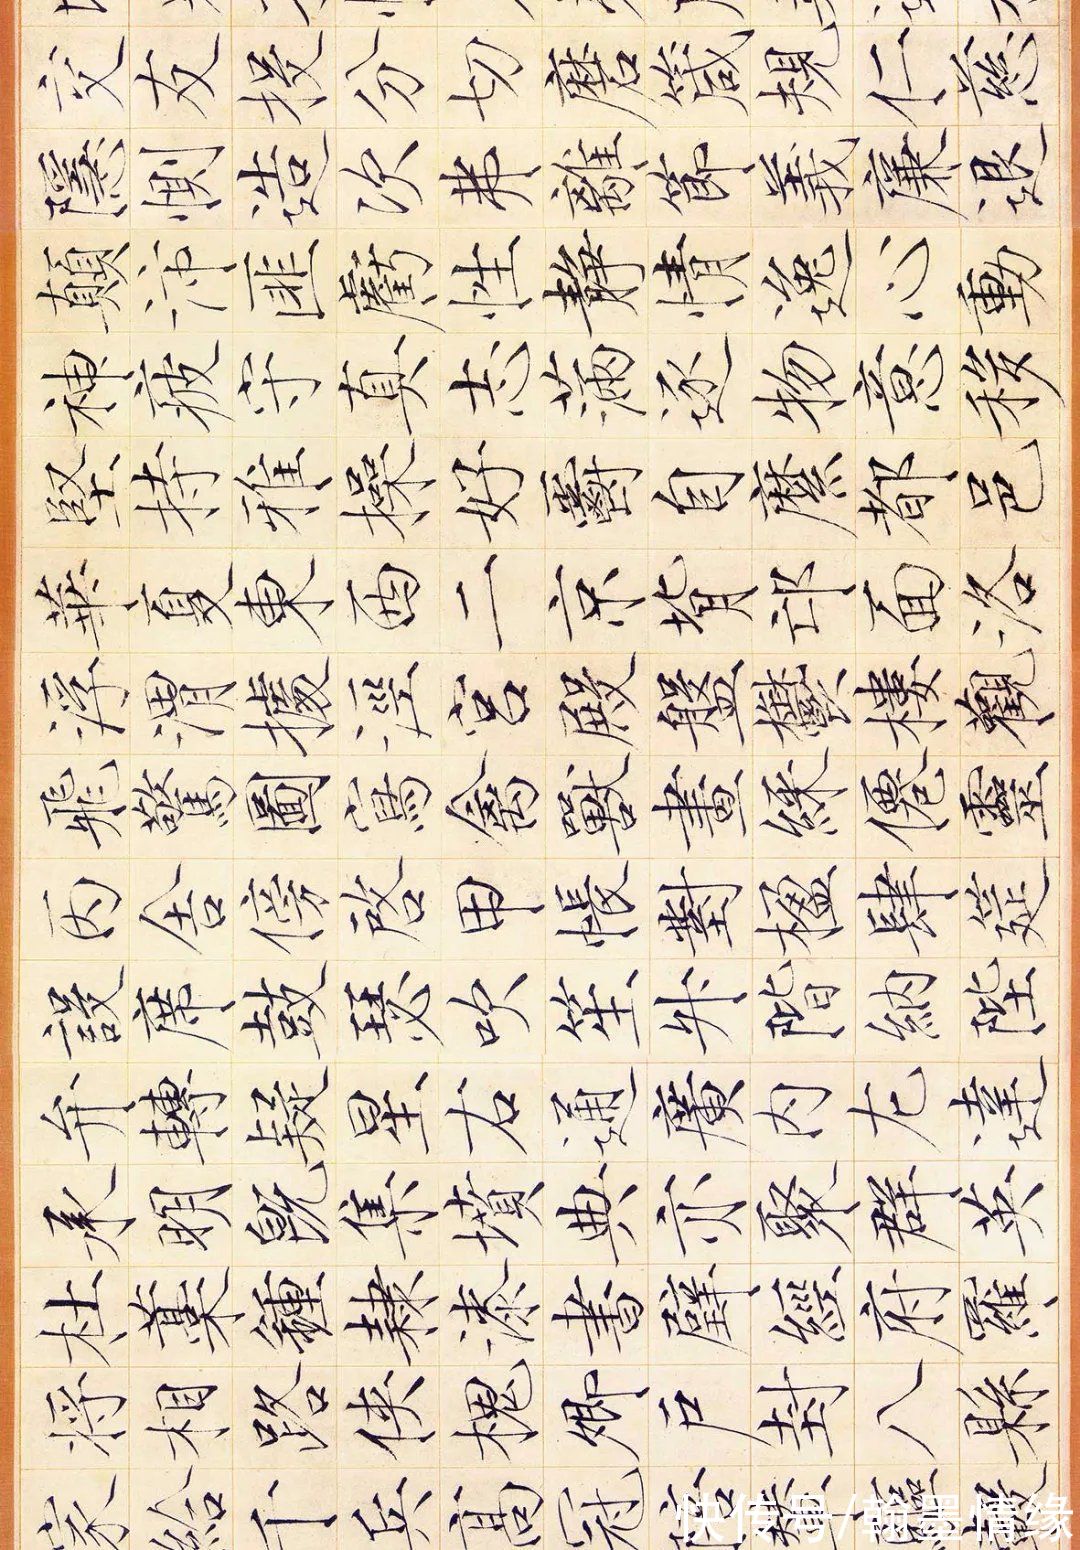 交友投分切磨箴規仁慈
隱惻造次弗離節義廉退
顛沛匪虧性靜情逸心動
神疲守真志滿逐物意移
堅持雅操好爵自縻都邑
華夏東西二京背邙面洛
浮渭據涇宮殿盤鬱樓觀
飛驚圖寫禽獸畫綵僊靈
丙舍傍啓甲帳對楹肆筵
設席鼓瑟吹笙升階納陛
弁轉疑星右通廣內左達
承明既集墳典亦聚群英
杜稾鍾隸漆書壁經府羅
將相路俠槐卿戶封八縣
家給千兵高冠
快传号/翰墨情缘